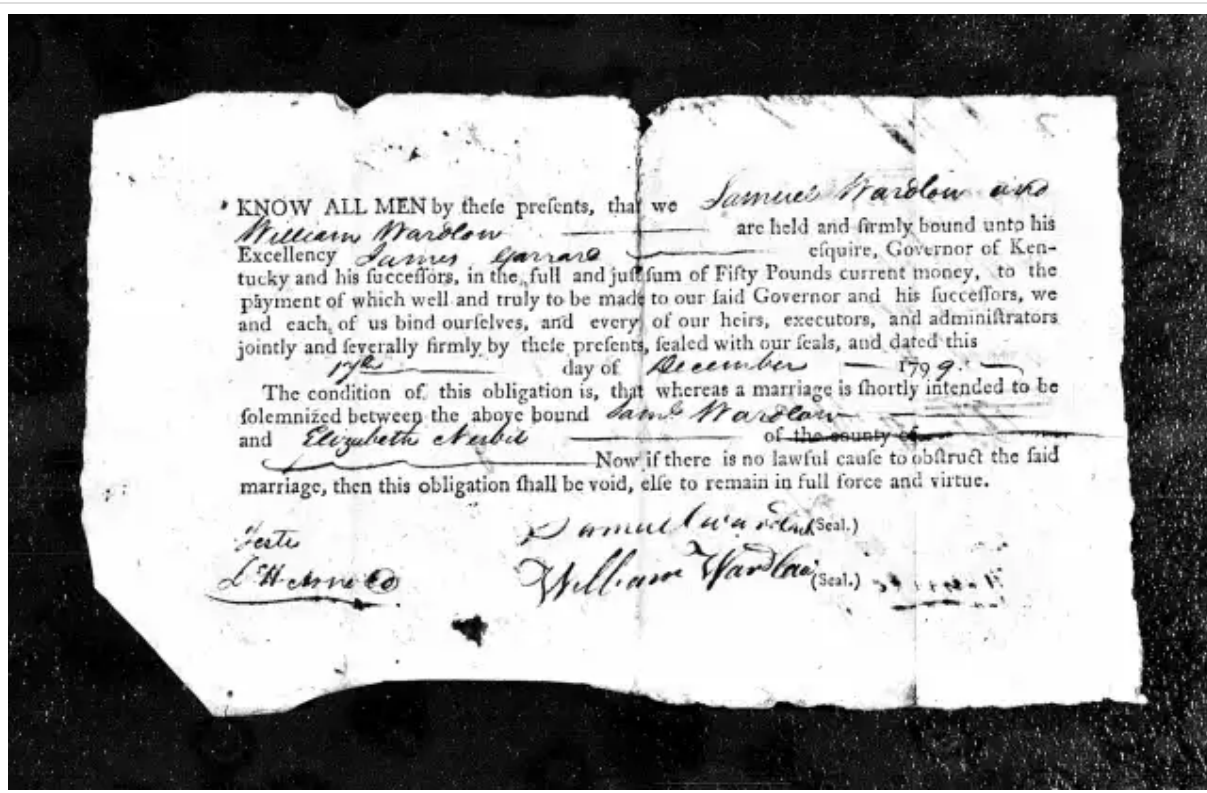 KNOW ALL MEN by theſe preſents, that we Samuel Wardlow and
William Wardlow are held and firmly bound unto his
Excellency James Garrard eſquire, Governor of Ken-
tucky and his ſucceſſors, in the full and juſt ſum of Fifty Pounds current money, to the
payment of which well and truly to be made to our ſaid Governor and his ſucceſſors, we
and each of us bind ourſelves, and every of our heirs, executors, and adminiſtrators
jointly and ſeverally firmly by theſe preſents, ſealed with our ſeals, and dated this
17th day of December 1799.
The condition of this obligation is, that whereas a marriage is ſhortly intended to be
ſolemnized between the above bound Saml Wardlow
and Elizabeth Nesbit of the county of
Now if there is no lawful cauſe to obſtruct the ſaid
marriage, then this obligation ſhall be void, elſe to remain in full force and virtue.
Samuel Wardlaw (Seal.)
Teste
William Wardlaw (Seal.)